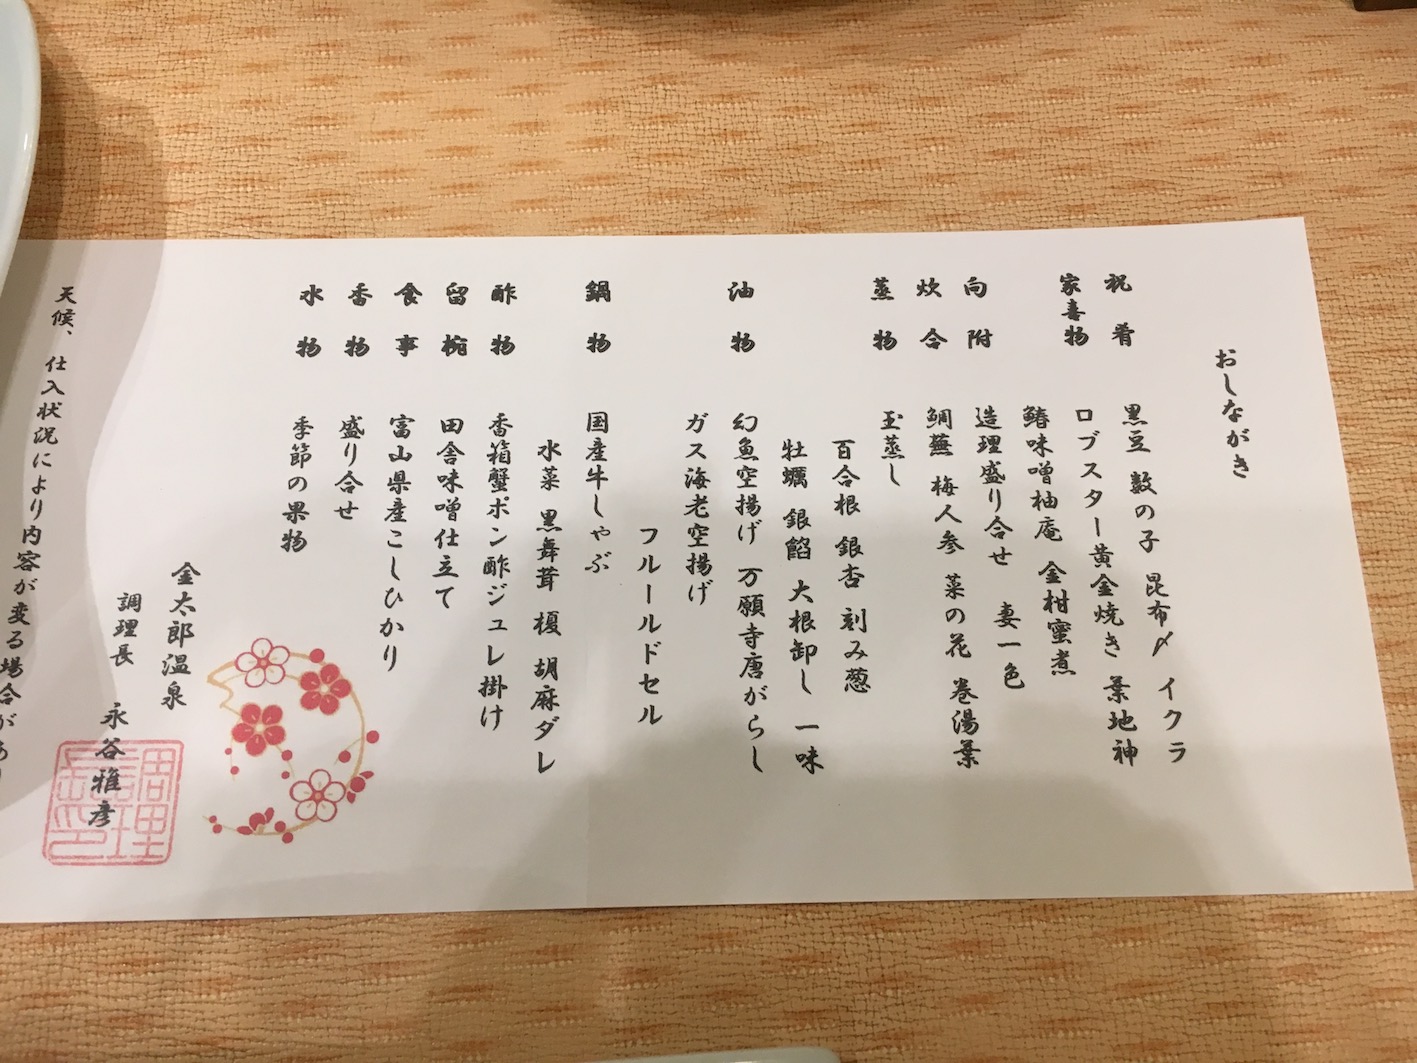 おしながき
祝肴 黒豆 数の子 昆布〆 イクラ
家喜物 ロブスター黄金焼き 葉地神
鰆味噌柚庵 金柑蜜煮
向附 造理盛り合せ 妻一色
炊合 鯛蕪 梅人参 菜の花 巻湯葉
蒸物 玉蒸し
百合根 銀杏 刻み葱
牡蠣 銀餡 大根卸し 一味
油物 幻魚空揚げ 万願寺唐がらし
ガス海老空揚げ
フルールドセル
鍋物 国産牛しゃぶ
水菜 黒舞茸 榎 胡麻ダレ
酢物 香箱蟹ポン酢ジュレ掛け
留椀 田舎味噌仕立て
食事 富山県産こしひかり
香物 盛り合せ
水物 季節の果物
金太郎温泉
調理長 永谷雅彦
調理
天候、仕入状況により内容が変る場合があ